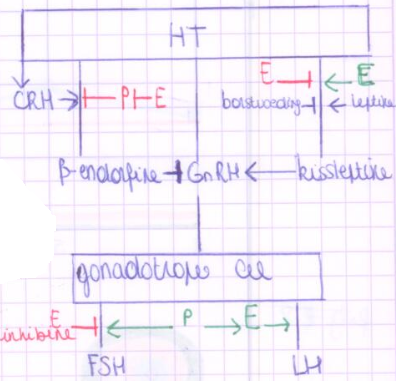 HT
E E
CRH P E borstvoeding leptine
β-endorfine GnRH kissleptine
gonadotrope cel
E P E
inhibine
FSH LH